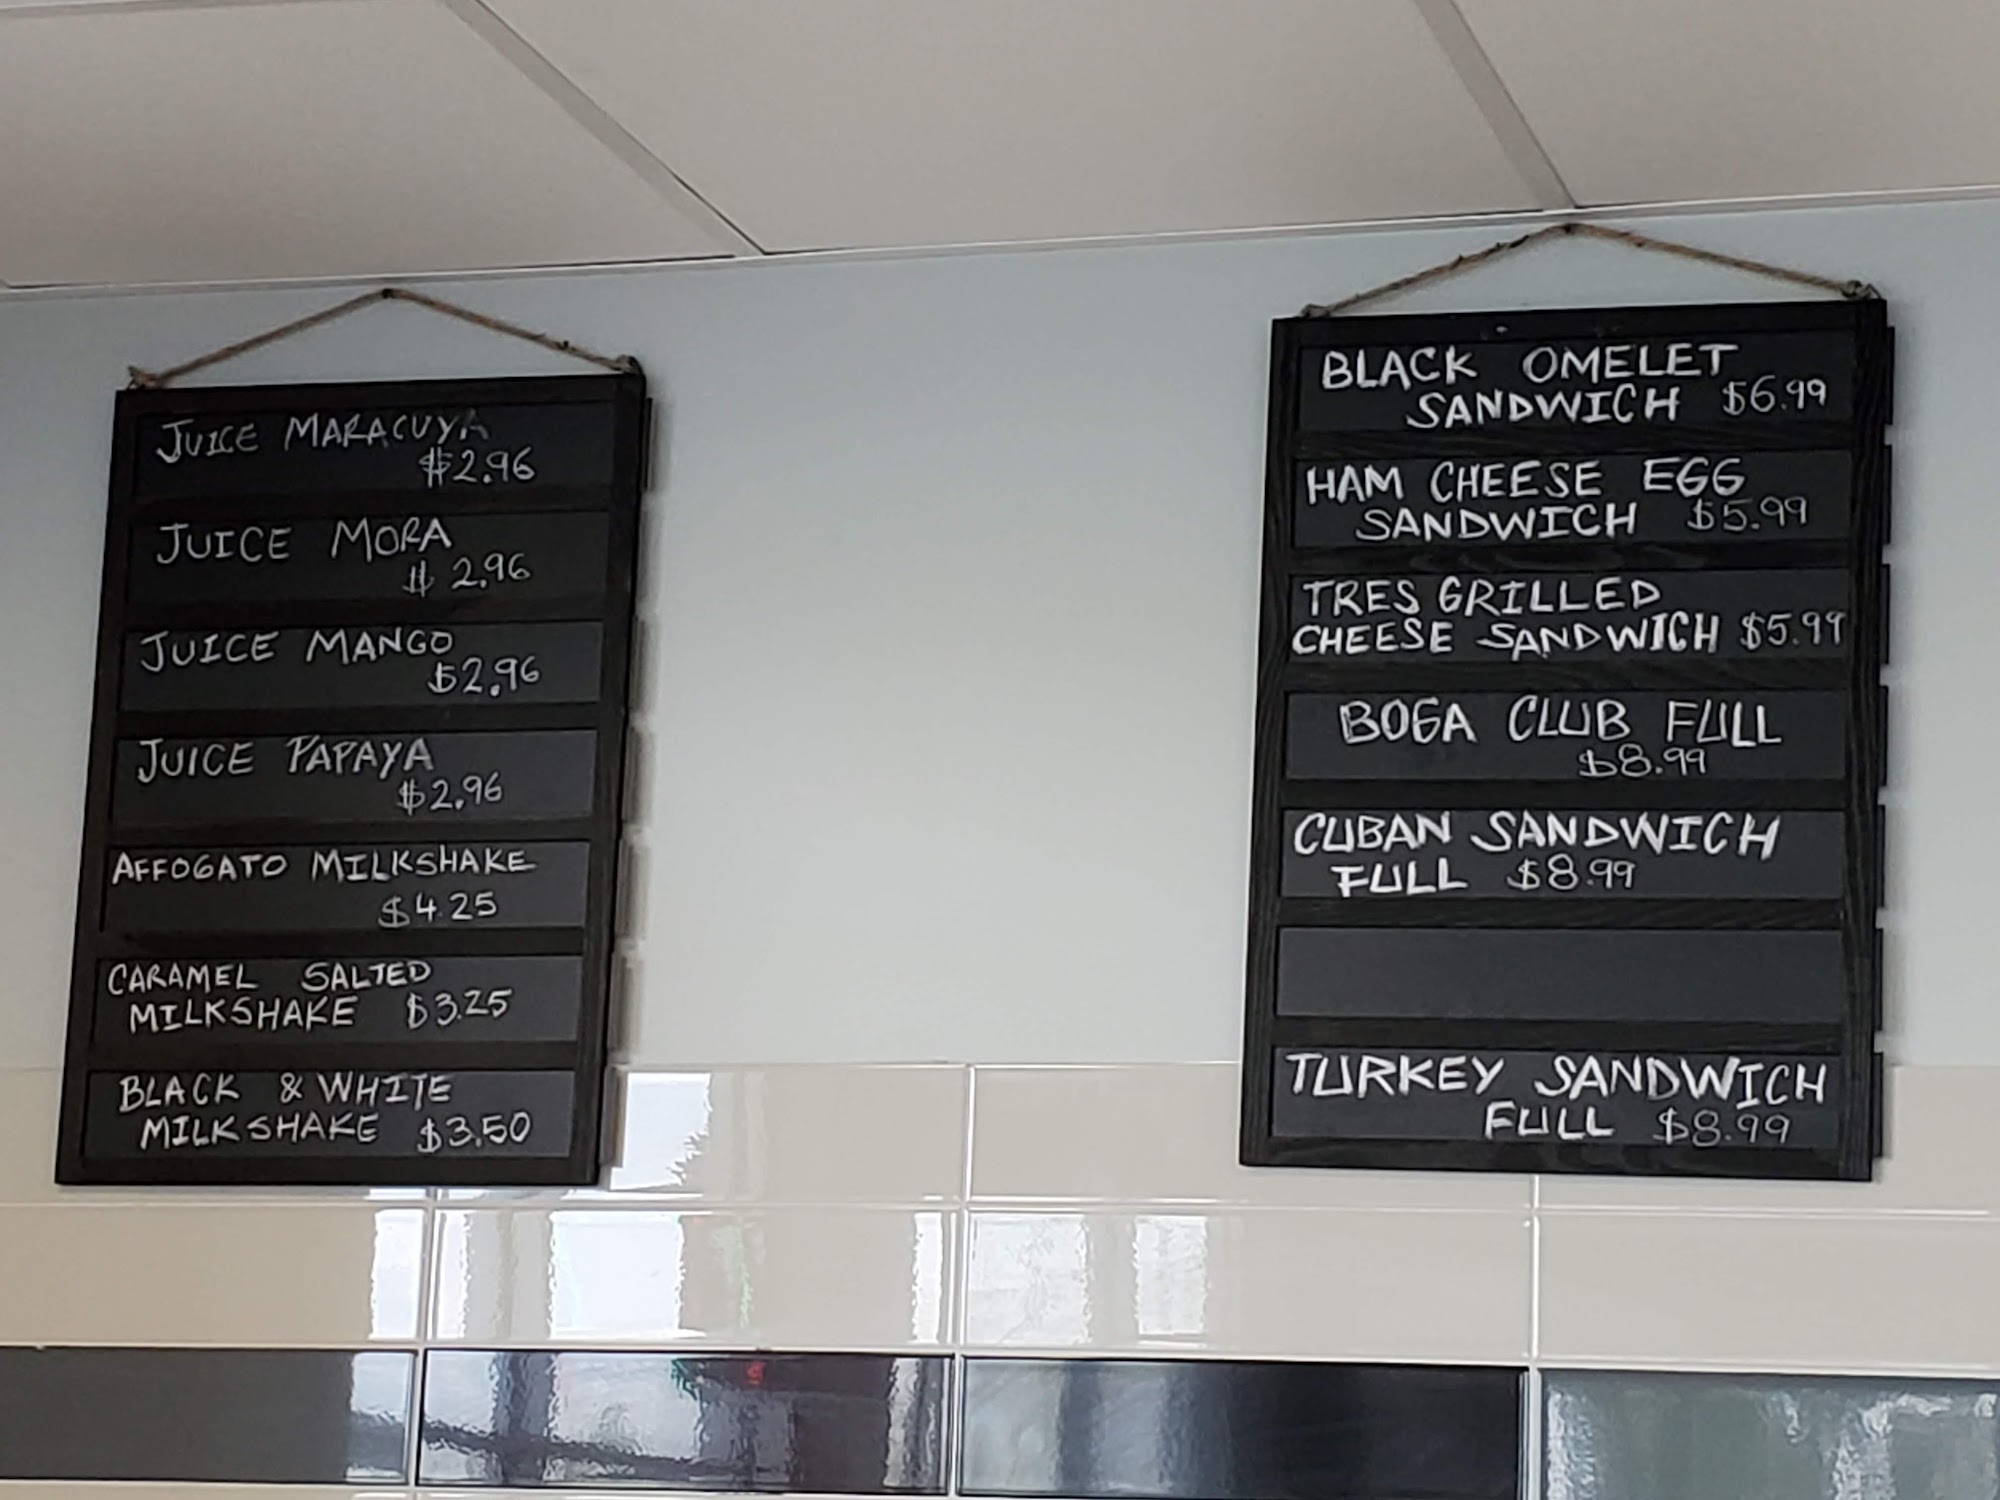 JUICE MARACUYA
$2.96
JUICE MORA
$2.96
JUICE MANGO
$2.96
JUICE PAPAYA
$2.96
AFFOGATO MILKSHAKE
$4.25
CARAMEL SALTED
MILKSHAKE $3.25
BLACK & WHITE
MILKSHAKE $3.50
BLACK OMELET
SANDWICH $6.99
HAM CHEESE EGG
SANDWICH $5.99
TRES GRILLED
CHEESE SANDWICH $5.99
BOGA CLUB FULL
$8.99
CUBAN SANDWICH
FULL $8.99
TURKEY SANDWICH
FULL $8.99